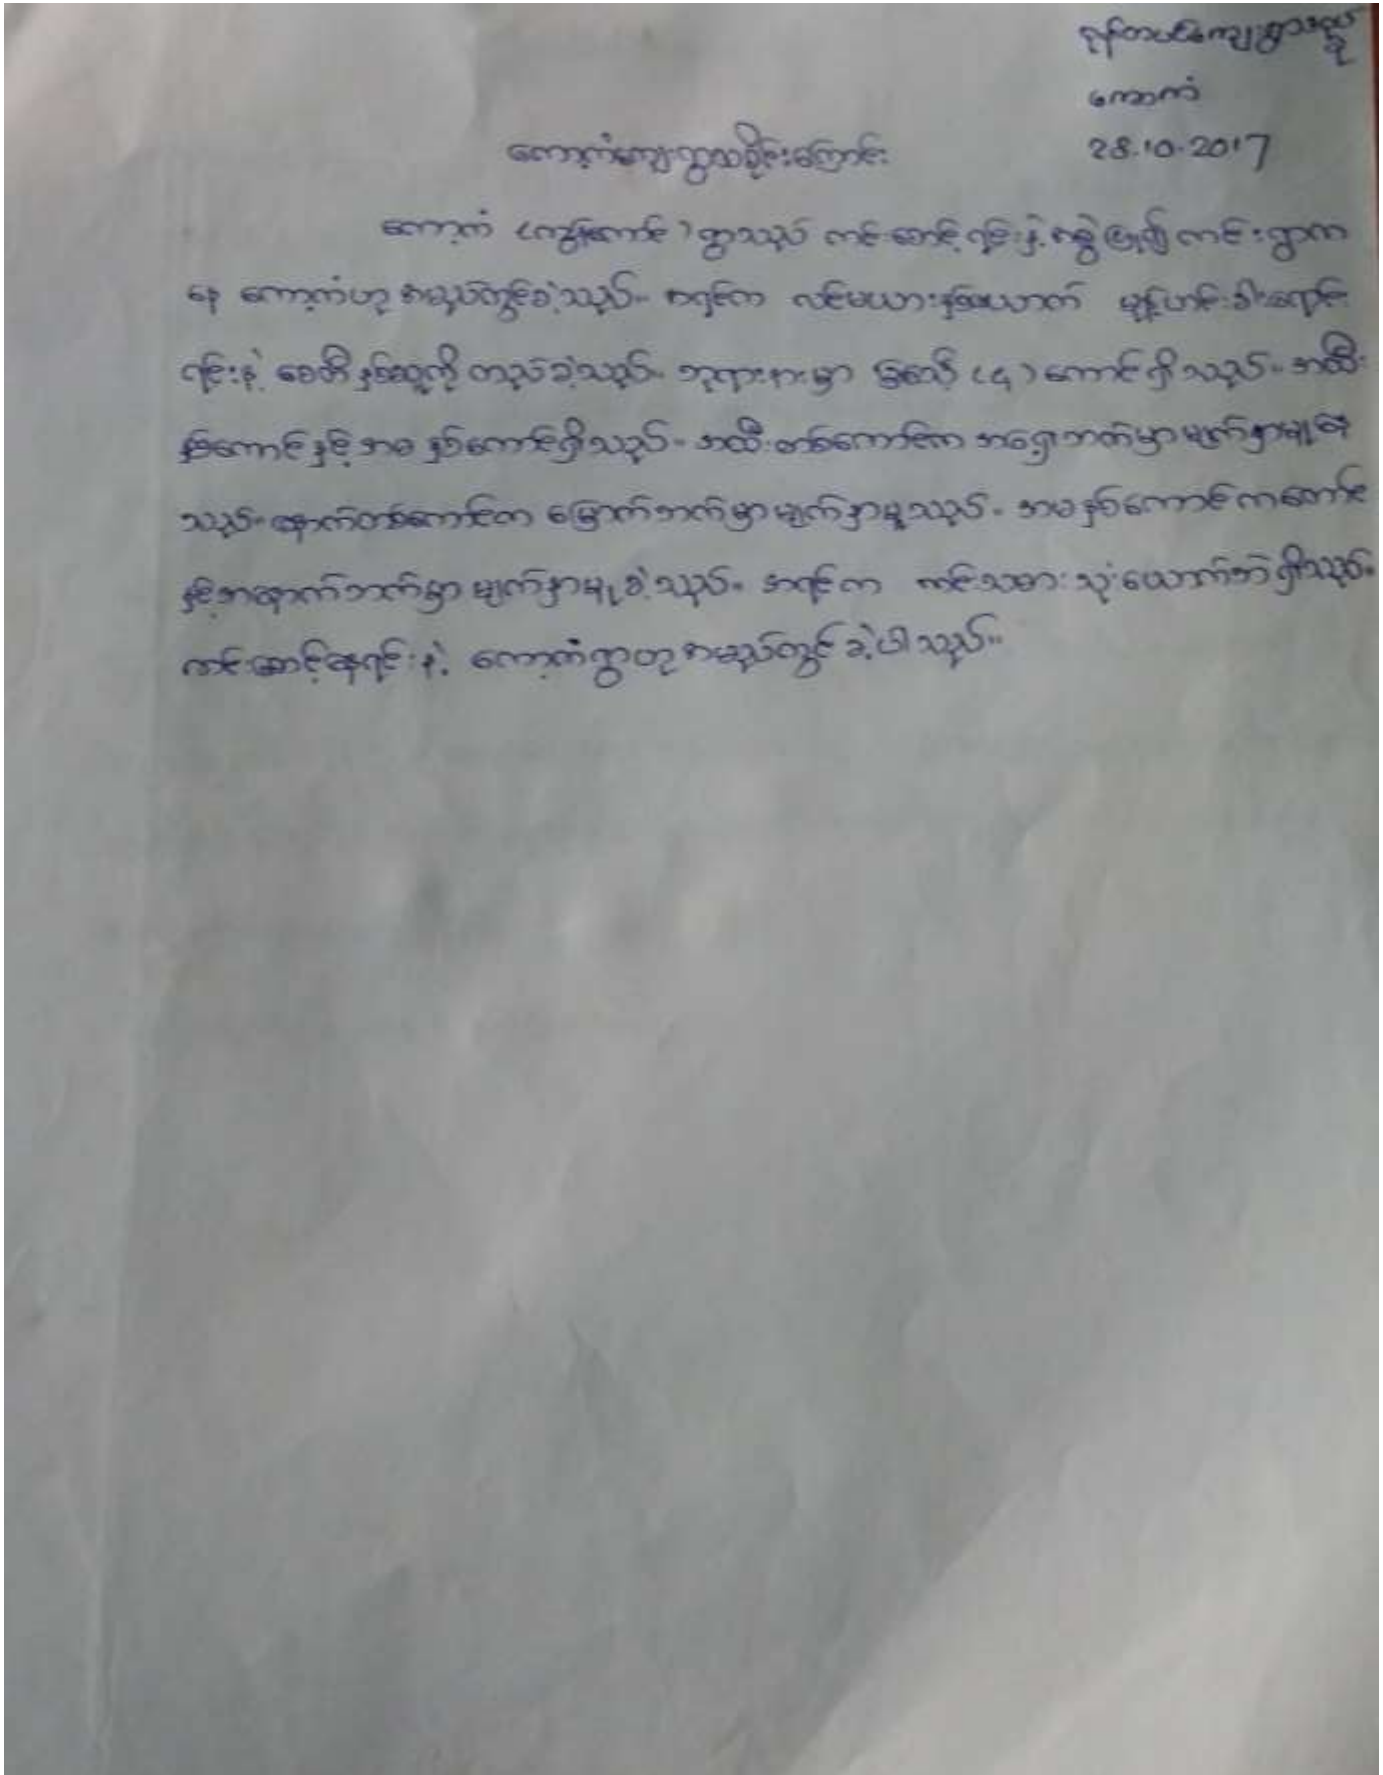 ကျေးရွာ
ကော့ကံ
28.10.2017
ကော့ကံကျေးရွာသမိုင်းကြောင်း
ကော့ကံ ( ) ရွာသည် ကင်းစောင့်ရင်းနဲ့ စွဲပြု၍ ကင်းရွာက
နေ ကော့ကံဟု အမည်တွင်ခဲ့သည်။ အရင်က လင်မယားနှစ်ယောက် မုန့်ဟင်းခါးရောင်း
ရင်းနဲ့ စေတီနှစ်ဆူကို တည်ခဲ့သည်။ ဘုရားနားမှာ ခြင်္သေ့ (၄) ကောင်ရှိသည်။ အထီး
နှစ်ကောင်နှင့် အမ နှစ်ကောင်ရှိသည်။ အထီးတစ်ကောင်က အရှေ့ဘက်မှာမျက်နှာမူနေ
သည်။ နောက်တစ်ကောင်က မြောက်ဘက်မှာမျက်နှာမူသည်။ အမနှစ်ကောင်ကတောင်
နှင့်အနောက်ဘက်မှာ မျက်နှာမူခဲ့သည်။ အရင်က ကင်းသမား သုံးယောက်ဘဲရှိသည်။
ကင်းစောင့်နေရင်းနဲ့ ကော့ကံရွာဟု အမည်တွင်ခဲ့ပါသည်။